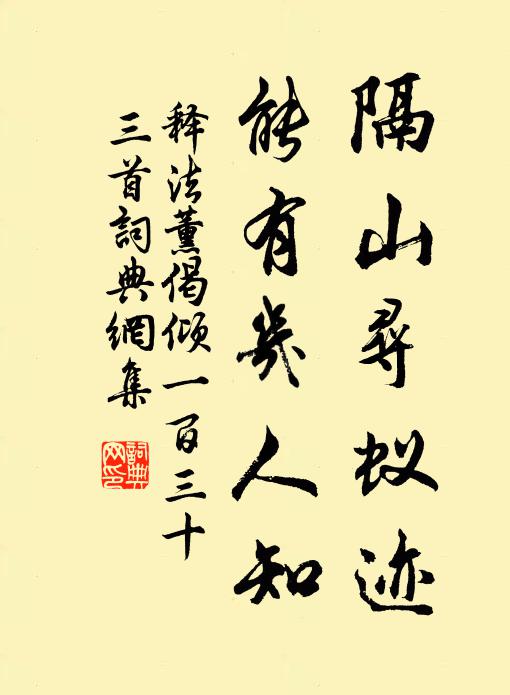 隔山寻蚁迹
能有几人知
释法薰偈倾一百三十
三首词典網集
詞典网印